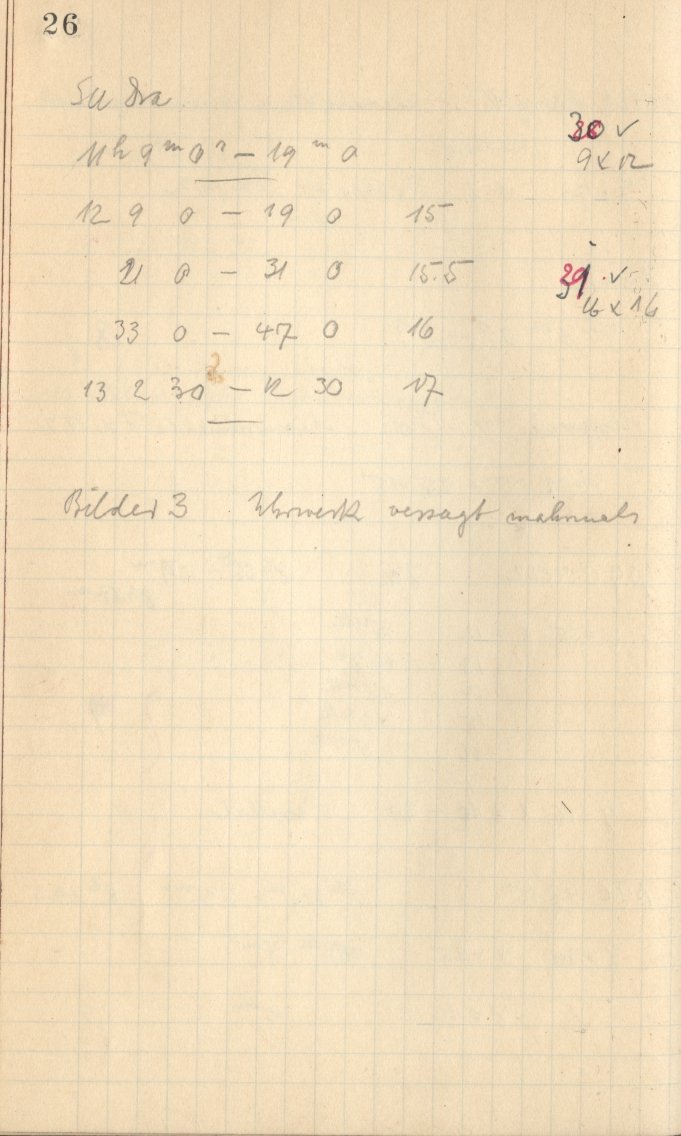 26
SU Dra
11h 9m 0s – 19m 0
30 ✓
9 x 12
12 9 0 – 19 0 15
21 0 – 31 0 15.5
31 ✓
16 x 16
33 0 – 47 0 16
13 2 30 – 12 30 17
Bilder 3 Uhrwerk versagt mehrmals